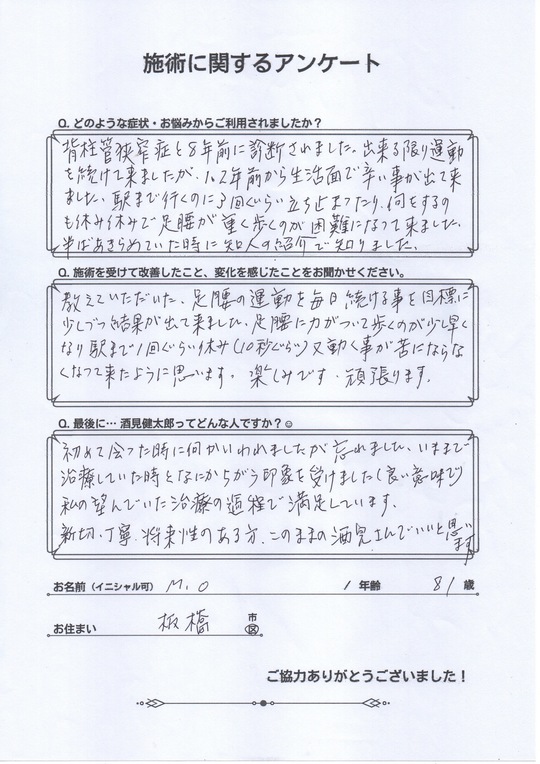 施術に関するアンケート
Q. どのような症状・お悩みからご利用されましたか？
背柱管狭窄症と8年前に診断されました。出来る限り運動
を続けて来ましたが、1、2年前から生活面で辛い事が出て来
ました。駅まで行くのに3回ぐらい立ち止まったり、何をするの
も休み休みで足腰が重く歩くのが困難になって来ました。
半ばあきらめていた時に知人の紹介で知りました。
Q. 施術を受けて改善したこと、変化を感じたことをお聞かせください。
教えていただいた、足腰の運動を毎日続ける事を目標に
少しづつ結果が出て来ました、足腰に力がついて歩くのが少し早く
なり駅まで1回ぐらい休み(10秒ぐらい)又動く事が苦にならな
くなって来たように思います。楽しみです。頑張ります。
Q. 最後に… 酒見健太郎ってどんな人ですか？☺
初めて会った時に何かいわれましたが忘れました、いままで
治療していた時となにかちがう印象を受けました(良い意味で)
私の望んでいた治療の過程で満足しています。
新切、丁寧、将来性のある方、このままの酒見さんでいいと思います
お名前（イニシャル可） M.O / 年齢 81 歳
お住まい 板橋 市 区
ご協力ありがとうございました！